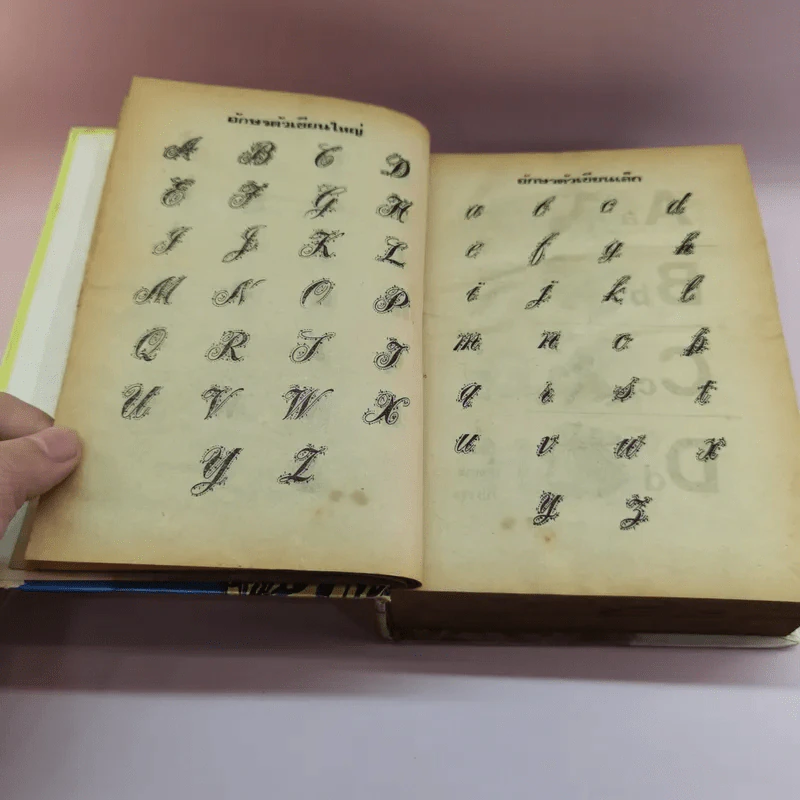 อักษรตัวเขียนใหญ่
A B C D
E F G H
I J K L
M N O P
Q R S T
U V W X
Y Z
อักษรตัวเขียนเล็ก
a b c d
e f g h
i j k l
m n o p
q r s t
u v w x
y z